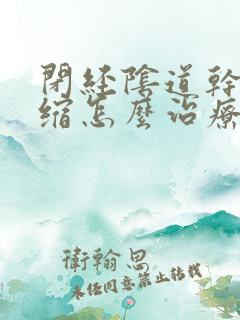 閉經陰道幹
缩怎麼治療
衛翰思
未经同意禁止转载